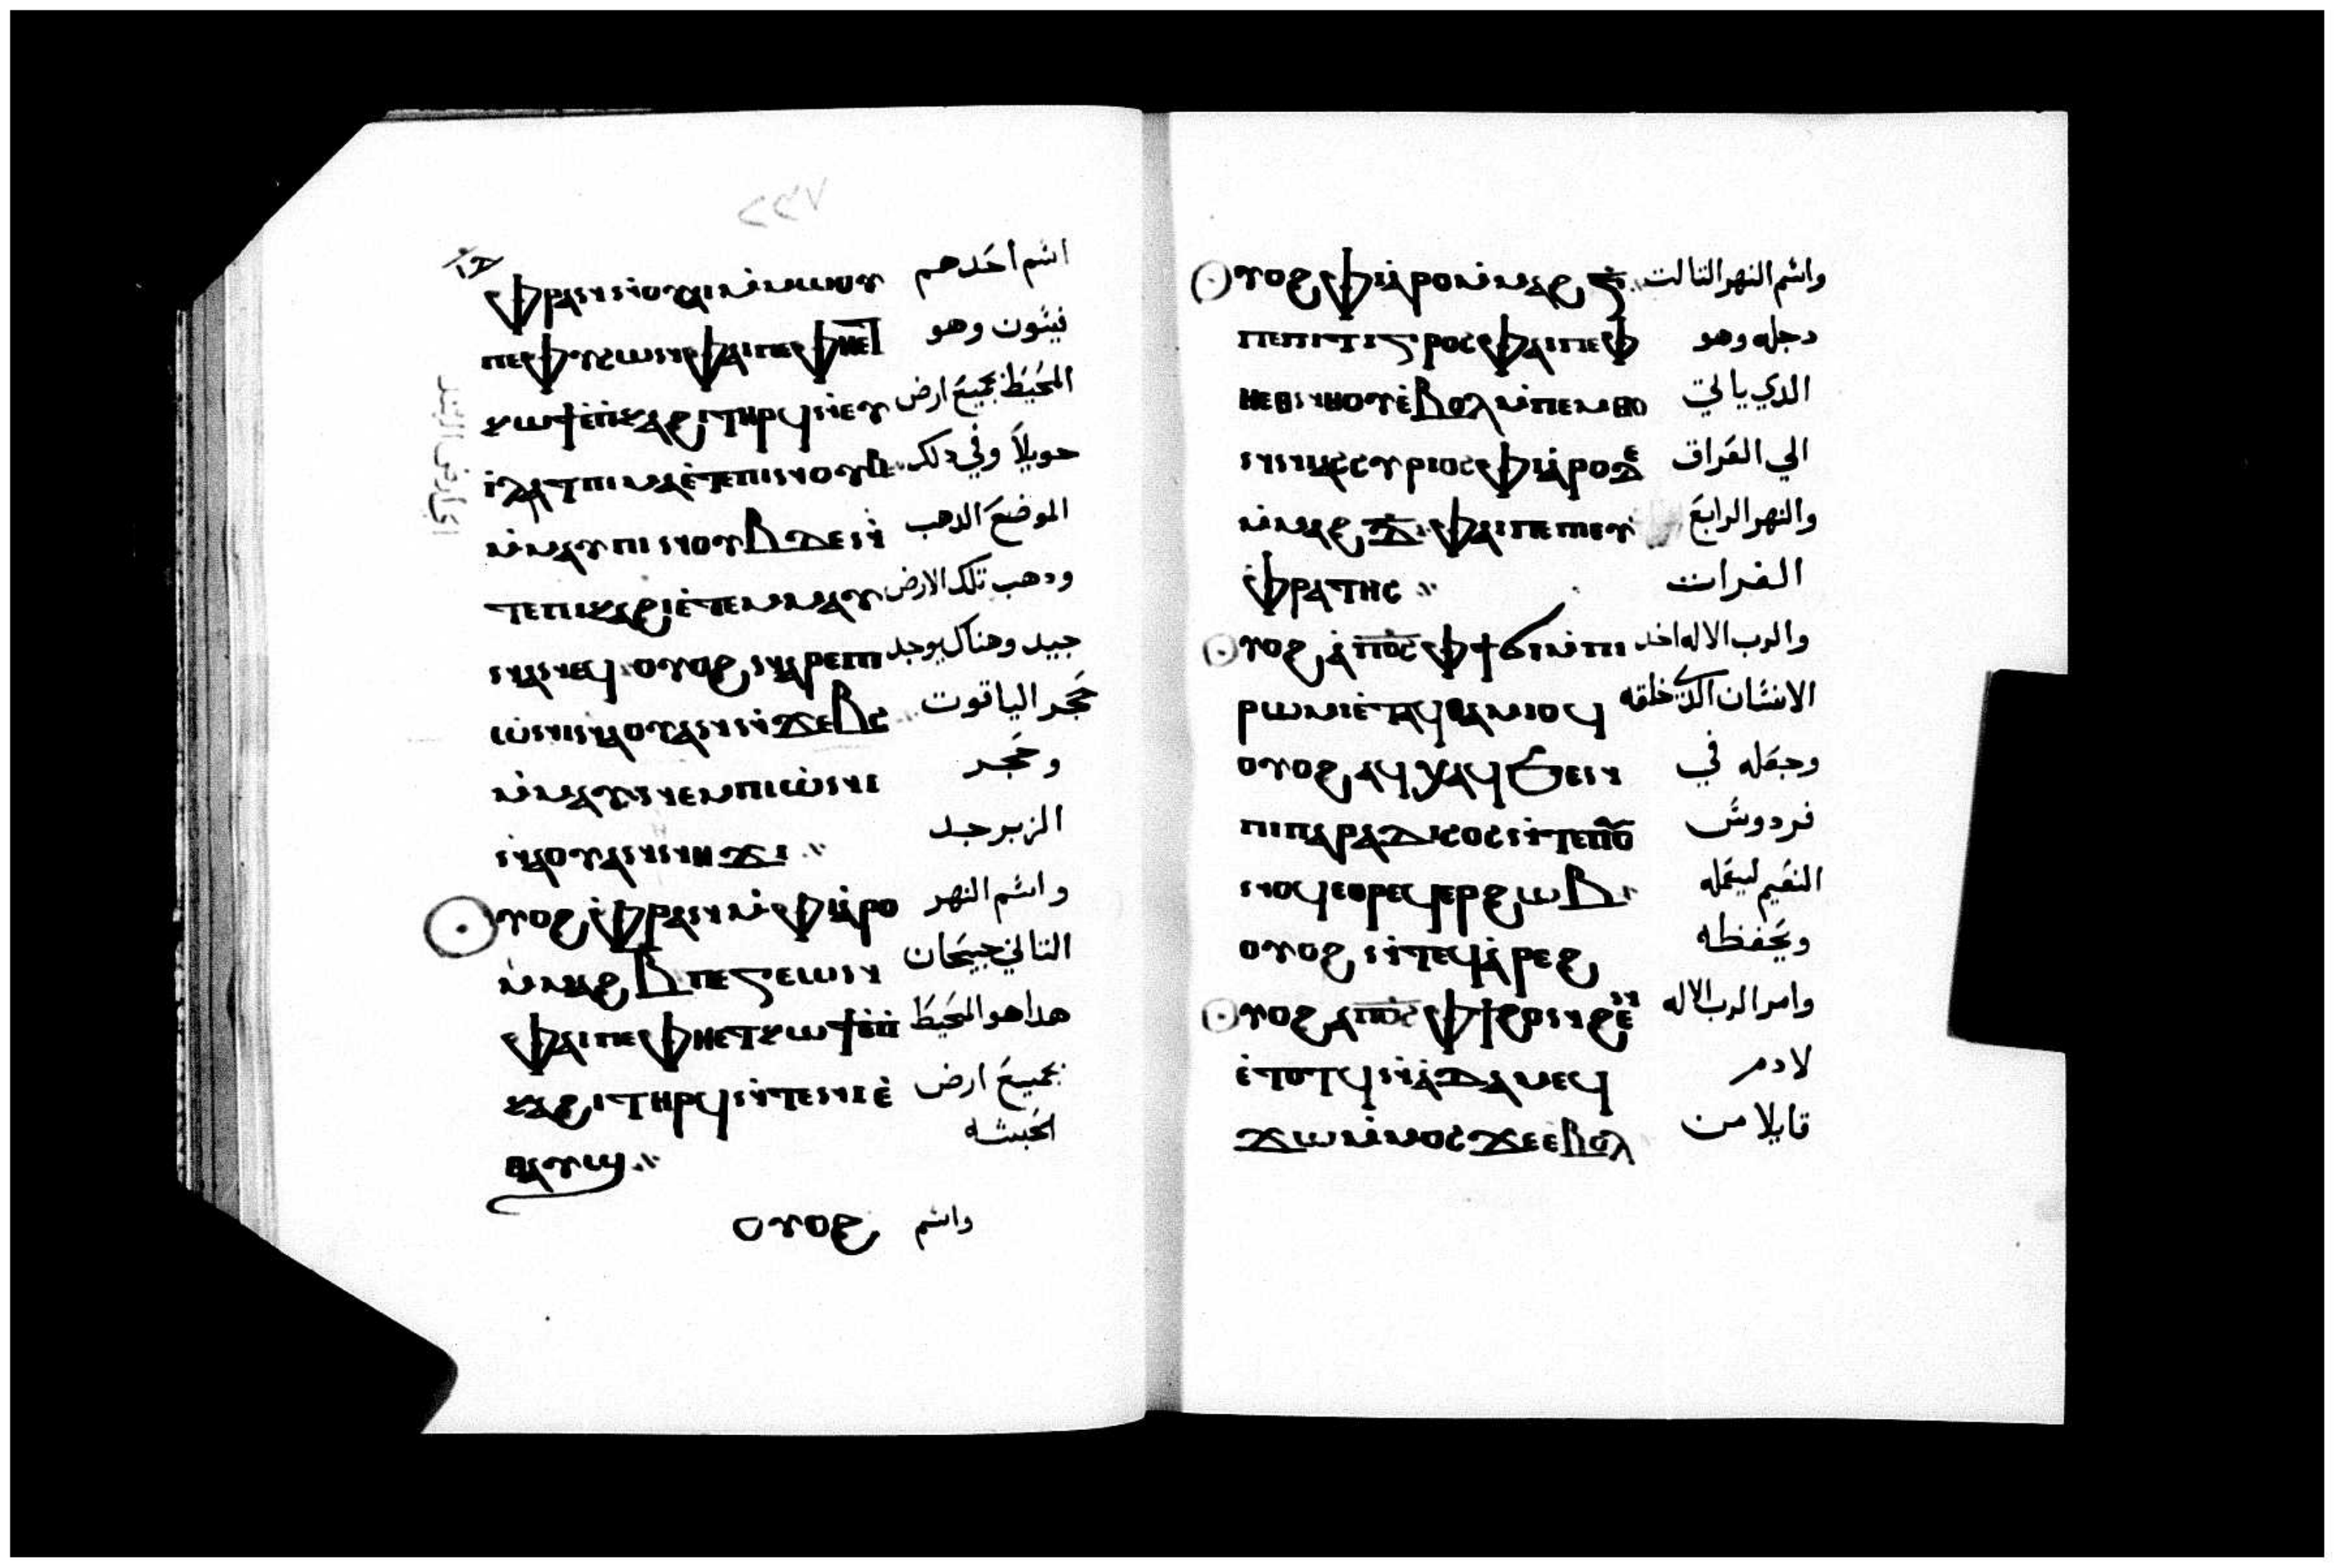 ⲫⲣⲁⲛⲛ̇ⲟⲩⲁⲓⲙ̇ⲙⲱⲟⲩ اسم احدهم
ⲡⲉⲫⲩⲥⲱⲛⲫⲁⲓⲡⲉⲫⲏⲉⲧ فيسون وهو
ⲕⲱϯⲉ̇ⲡ̇ⲕⲁϩⲓⲧⲏⲣϥⲛ̇ⲉⲩ المحيط بجميع ارض
ⲓ̇ⲗⲁⲧⲡⲓⲙⲁⲉ̇ⲧⲉⲡⲓⲛⲟⲩⲃ حويلا وفي دلك
ⲙ̇ⲙⲁⲩⲡⲓⲛⲟⲩⲃⲇⲉⲛ̇ الموضع الدهب
ⲧⲉⲡⲓⲕⲁϩⲓⲉ̇ⲧⲉⲙⲙⲁⲩ ودهب تلك الارض
ⲛⲁⲛⲉϥ ⲟⲩⲟϩⲛⲁⲣⲉⲡⲓ جيد وهناك يوجد
ⲱ̇ⲛⲓⲛ̇ⲁⲟⲩⲁⲛⲛ̇ϫⲉⲃⲥ حجر الياقوت
ⲙ̇ⲙⲁⲩⲛⲉⲙⲡⲓⲱ̇ⲛⲓ وحجر
ⲛ̇ⲁⲟⲩⲁⲛⲛⲏϫⲓ الزبرجد
ⲟⲩⲟϩⲫ̇ⲣⲁⲛⲙ̇ⲫⲓⲁⲣⲟ واسم النهر
ⲙ̇ⲙⲁϩⲃ̅ⲡⲉⲅⲉⲱⲛ التاني جيحان
ⲫⲁⲓⲡⲉⲫⲏⲉⲧⲕⲱϯⲉ̇ⲡ̇ هدا هو المحيط
ⲕⲁϩⲓⲧⲏⲣϥⲛ̇ⲧⲉⲛⲓⲉ̇ بجميع ارض
ⲑⲁⲩϣ الحبشه
ⲟⲩⲟϩ واسم
ⲟⲩⲟϩⲫⲓⲁ̇ⲣⲟⲙ̇ⲙⲁϩⲅ̅ واسم النهر التالت
ⲡⲉⲡⲓⲧⲓⲅⲣⲟⲥⲫⲁⲓⲡⲉⲫ دجله وهو
ⲏⲉⲑⲛⲏⲟⲩⲉ̇ⲃⲟⲗⲙ̇ⲡⲉⲙⲑⲟ الدي ياتي
ⲛⲛⲓⲁⲥⲥⲩⲣⲓⲟⲥⲫⲓⲁ̇ⲣⲟⲇⲉ الي العراق
ⲙ̇ⲙⲁϩⲇ̅ⲫⲁⲓⲡⲉⲡⲓⲉⲩ والنهر الرابع
ⲫ̇ⲣⲁⲧⲏⲥ الفرات
ⲟⲩⲟϩⲁ̇ⲡⲟ̅ⲥ̅ⲫϯϭⲓⲙ̇ⲡⲓ والرب الاله اخد
ⲣⲱⲙⲓⲉ̇ⲧⲁϥⲑⲁⲙⲓⲟϥ الانسان الدي خلقه
ⲟⲩⲟϩⲁϥⲭⲁϥϧⲉⲛ وجعله في
ⲡⲓⲡⲁⲣⲁⲇⲓⲥⲟⲥⲛ̇ⲧⲉⲡⲟⲩ فردوس
ⲛⲟϥⲉⲑⲣⲉϥⲉⲣϩⲱⲃ النعيم ليعمله
ⲟⲩⲟϩⲛ̇ⲧⲉϥⲁ̇ⲣⲉϩ ويحفظه
ⲟⲩⲟϩⲁⲡⲟ̅ⲥ̅ⲫϯϩⲟⲛϩⲉⲛ وامر الرب الاله
ⲉ̇ⲧⲟⲧϥⲛ̇ⲁ̇ⲇⲁⲙⲉϥ لادم
ϫⲱⲙ̇ⲙⲟⲥϫⲉⲉⲃⲟⲗ قايلا من